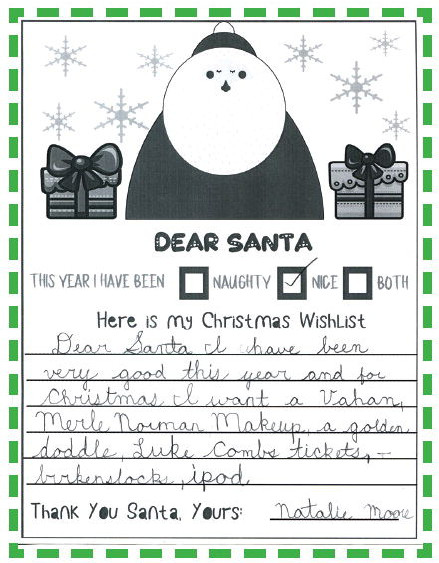 DEAR SANTA
THIS YEAR I HAVE BEEN NAUGHTY NICE BOTH
Here is my Christmas Wishlist
Dear Santa I have been
very good this year and for
Christmas I want a Vahan,
Merle Norman Makeup, a golden
doddle, Luke Combs tickets, -
birkenstocks, ipod
Thank You Santa, Yours: Natalie Moore